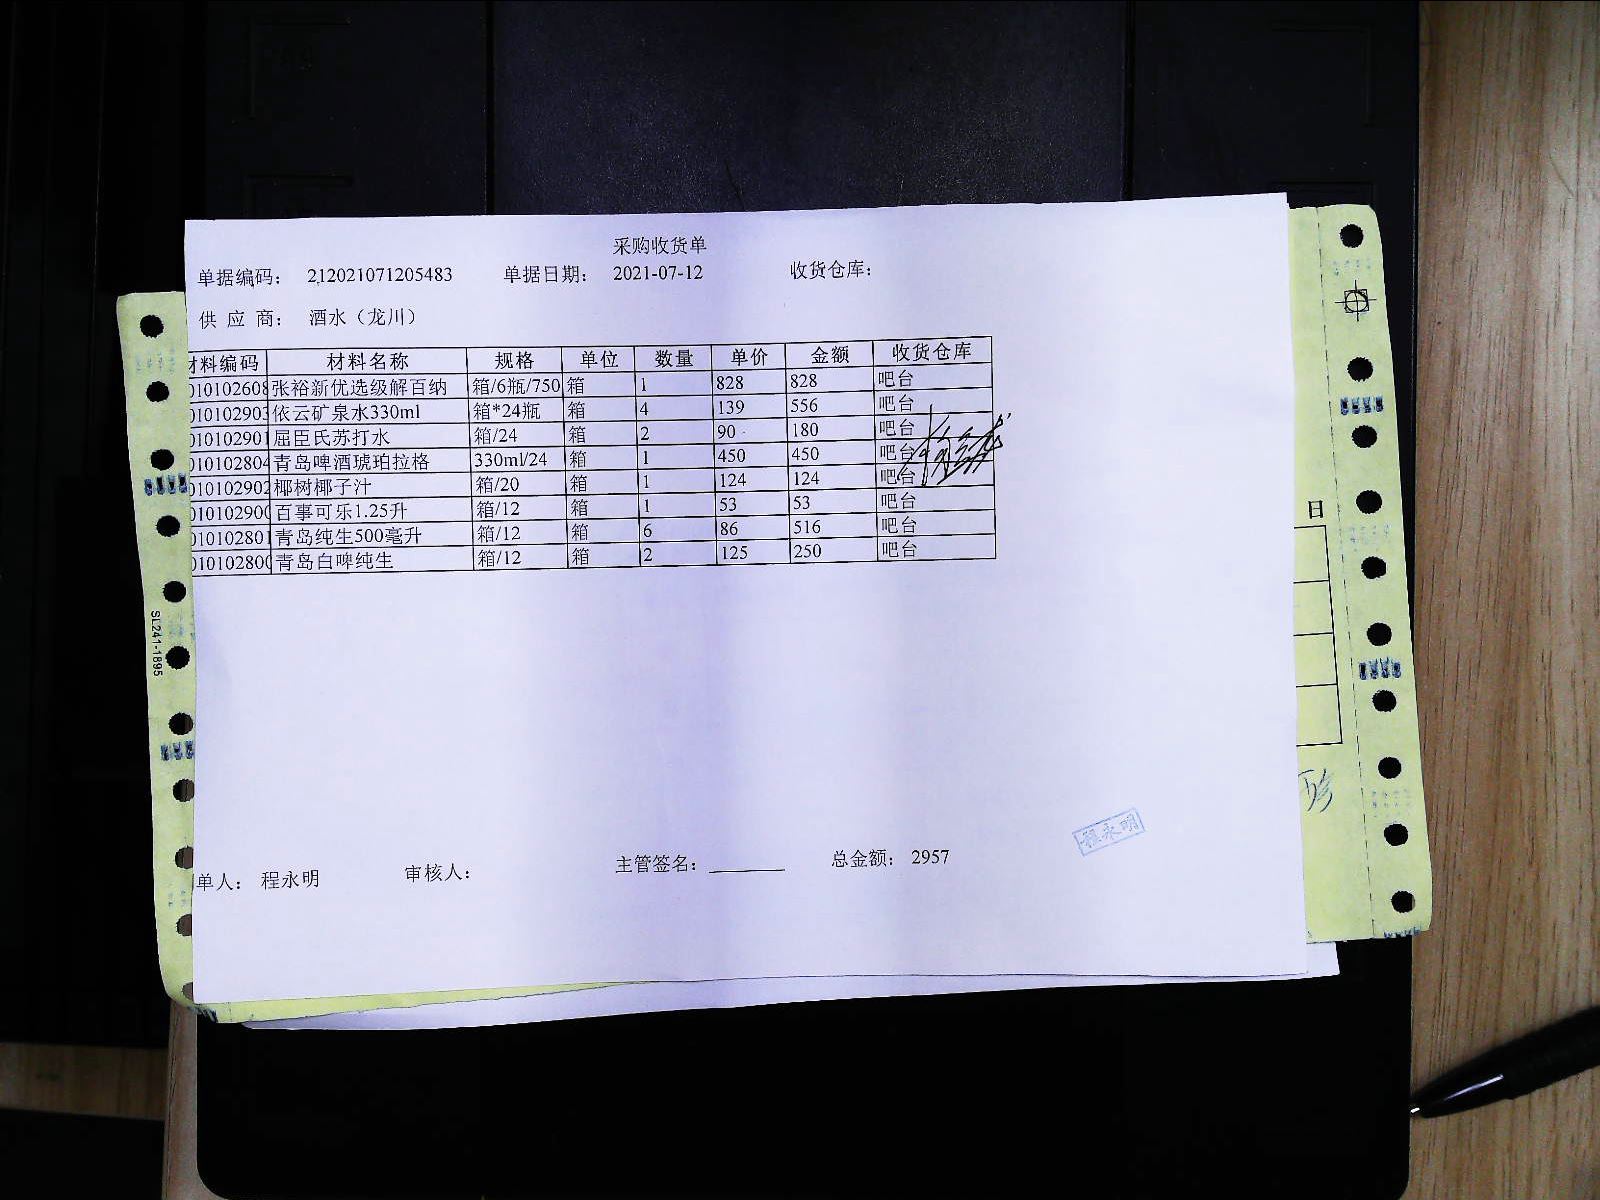 采购收货单
单据编码： 212021071205483 单据日期： 2021-07-12 收货仓库：
供 应 商： 酒水（龙川）
材料编码 材料名称 规格 单位 数量 单价 金额 收货仓库
010102608 张裕新优选级解百纳 箱/6瓶/750 箱 1 828 828 吧台
010102903 依云矿泉水330ml 箱*24瓶 箱 4 139 556 吧台
010102901 屈臣氏苏打水 箱/24 箱 2 90 180 吧台
010102804 青岛啤酒琥珀拉格 330ml/24 箱 1 450 450 吧台
010102902 椰树椰子汁 箱/20 箱 1 124 124 吧台
010102900 百事可乐1.25升 箱/12 箱 1 53 53 吧台
010102801 青岛纯生500毫升 箱/12 箱 6 86 516 吧台
010102800 青岛白啤纯生 箱/12 箱 2 125 250 吧台
日
SL241-1895
程永明
单人： 程永明 审核人： 主管签名： 总金额： 2957